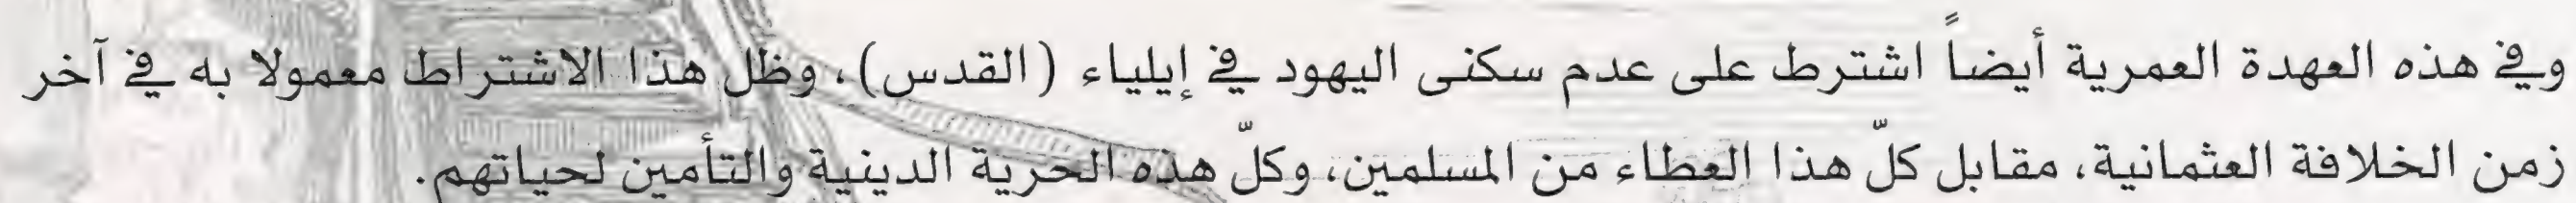 وفي هذه العهدة العمرية أيضاً اشترط على عدم سكنى اليهود في إيلياء (القدس)، وظل هذا الاشتراط معمولا به في آخر
زمن الخلافة العثمانية، مقابل كلّ هذا العطاء من المسلمين، وكلّ هذه الحرية الدينية والتأمين لحياتهم.